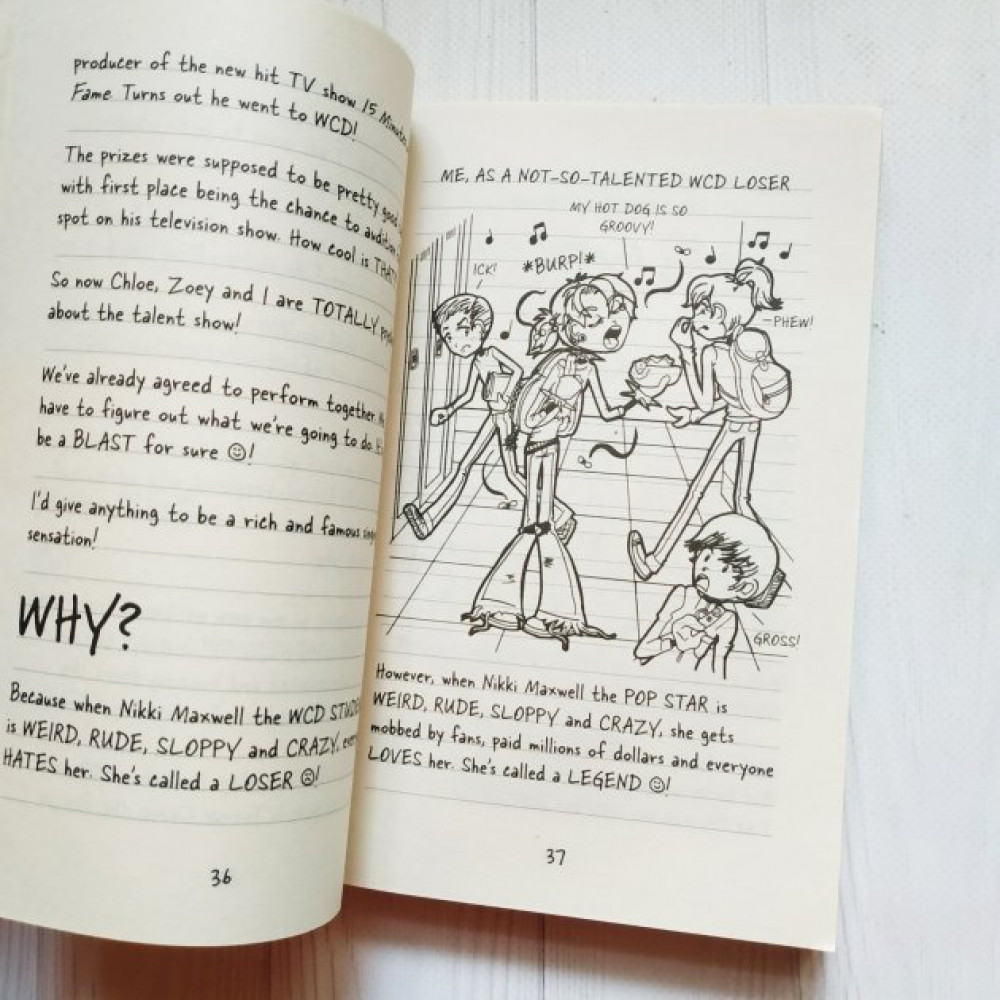 producer of the new hit TV show 15 Minutes
Fame. Turns out he went to WCD!
The prizes were supposed to be pretty good
with first place being the chance to audition
spot on his television show. How cool is THAT
So now Chloe, Zoey and I are TOTALLY
about the talent show!
We've already agreed to perform together.
have to figure out what we're going to do.
be a BLAST for sure ☺!
I'd give anything to be a rich and famous
sensation!
WHY?
Because when Nikki Maxwell the WCD
is WEIRD, RUDE, SLOPPY and CRAZY,
HATES her. She's called a LOSER ☹!
36
ME, AS A NOT-SO-TALENTED WCD LOSER
MY HOT DOG IS SO
GROOVY!
ICK!
*BURP!*
PHEW!
GROSS!
However, when Nikki Maxwell the POP STAR is
WEIRD, RUDE, SLOPPY and CRAZY, she gets
mobbed by fans, paid millions of dollars and everyone
LOVES her. She's called a LEGEND ☺!
37